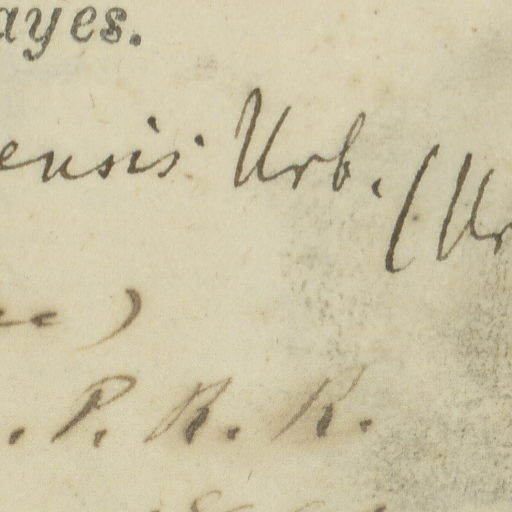 ayes.
ensis Urb. (Ur
)
. P. R. R.